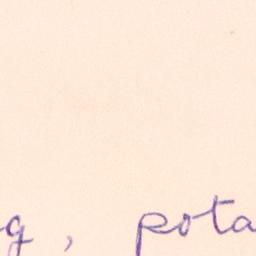 g, pota